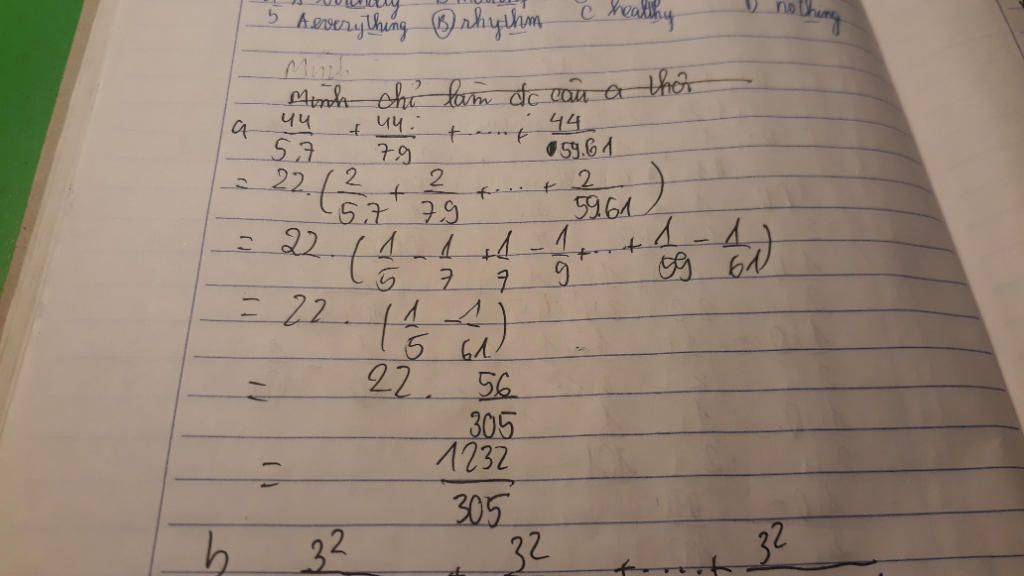 5 A everything B rhythm C healthy D nothing
Minh
Mình chỉ làm đc câu a thôi
a 44/5.7 + 44/7.9 + ..... + 44/59.61
= 22.(2/5.7 + 2/7.9 + ... + 2/59.61)
= 22.(1/5 - 1/7 + 1/7 - 1/9 + ... + 1/59 - 1/61)
= 22.(1/5 - 1/61)
= 22. 56/305
= 1232/305
b 3² + 3² + ..... + 3²